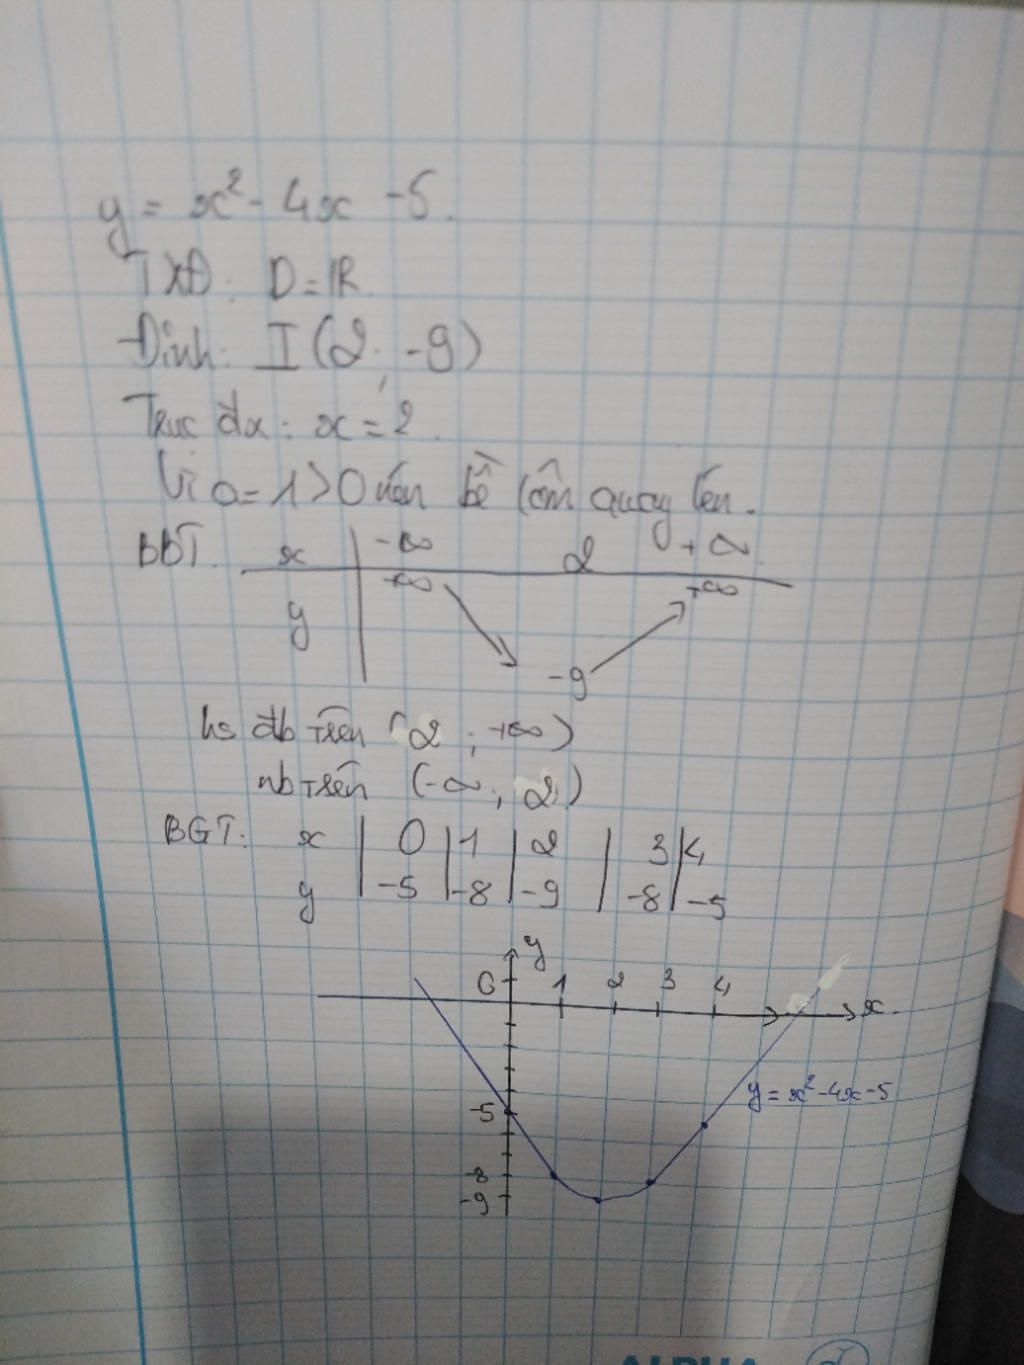 y = x² - 4x - 5.
TXĐ: D = ℝ.
Đỉnh: I(2; -9)
Trục đx: x = 2.
Vì a = 1 > 0 nên bề lõm quay lên.
BBT. x | -∞ 2 +∞
y | +∞ -9 +∞
hs đb trên (2 ; +∞)
nb trên (-∞; 2)
BGT: x | 0 | 1 | 2 | 3 | 4
y | -5 | -8 | -9 | -8 | -5
y
0 1 2 3 4 x
y = x² - 4x - 5
-5
-8
-9
ALPHA